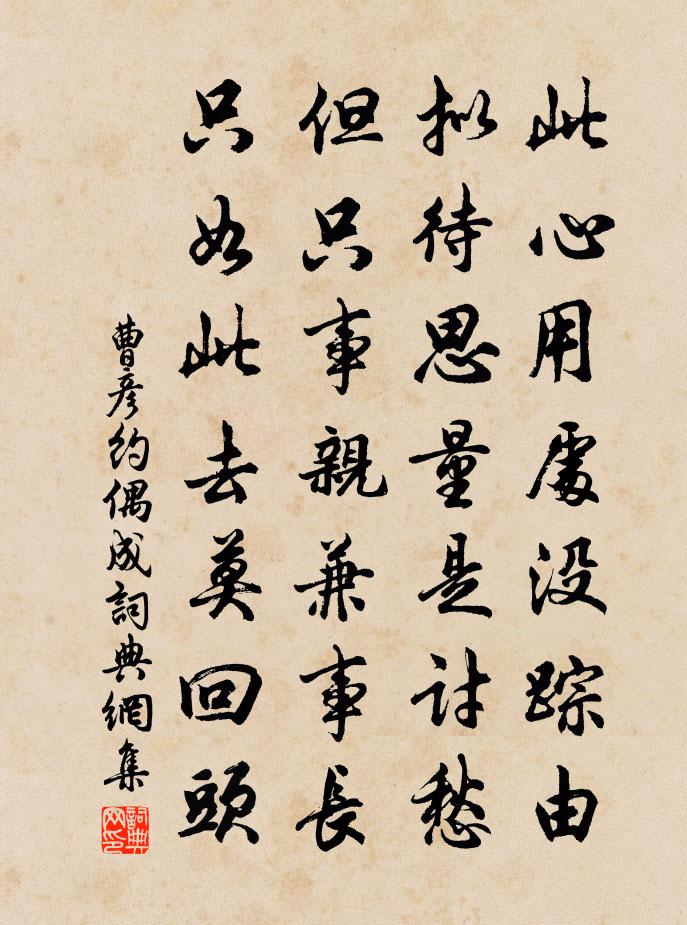 此心用處没踪由
拟待思量是討愁
但只事親兼事長
只如此去莫回頭
曹彦約偶成詞典網集
詞典网印